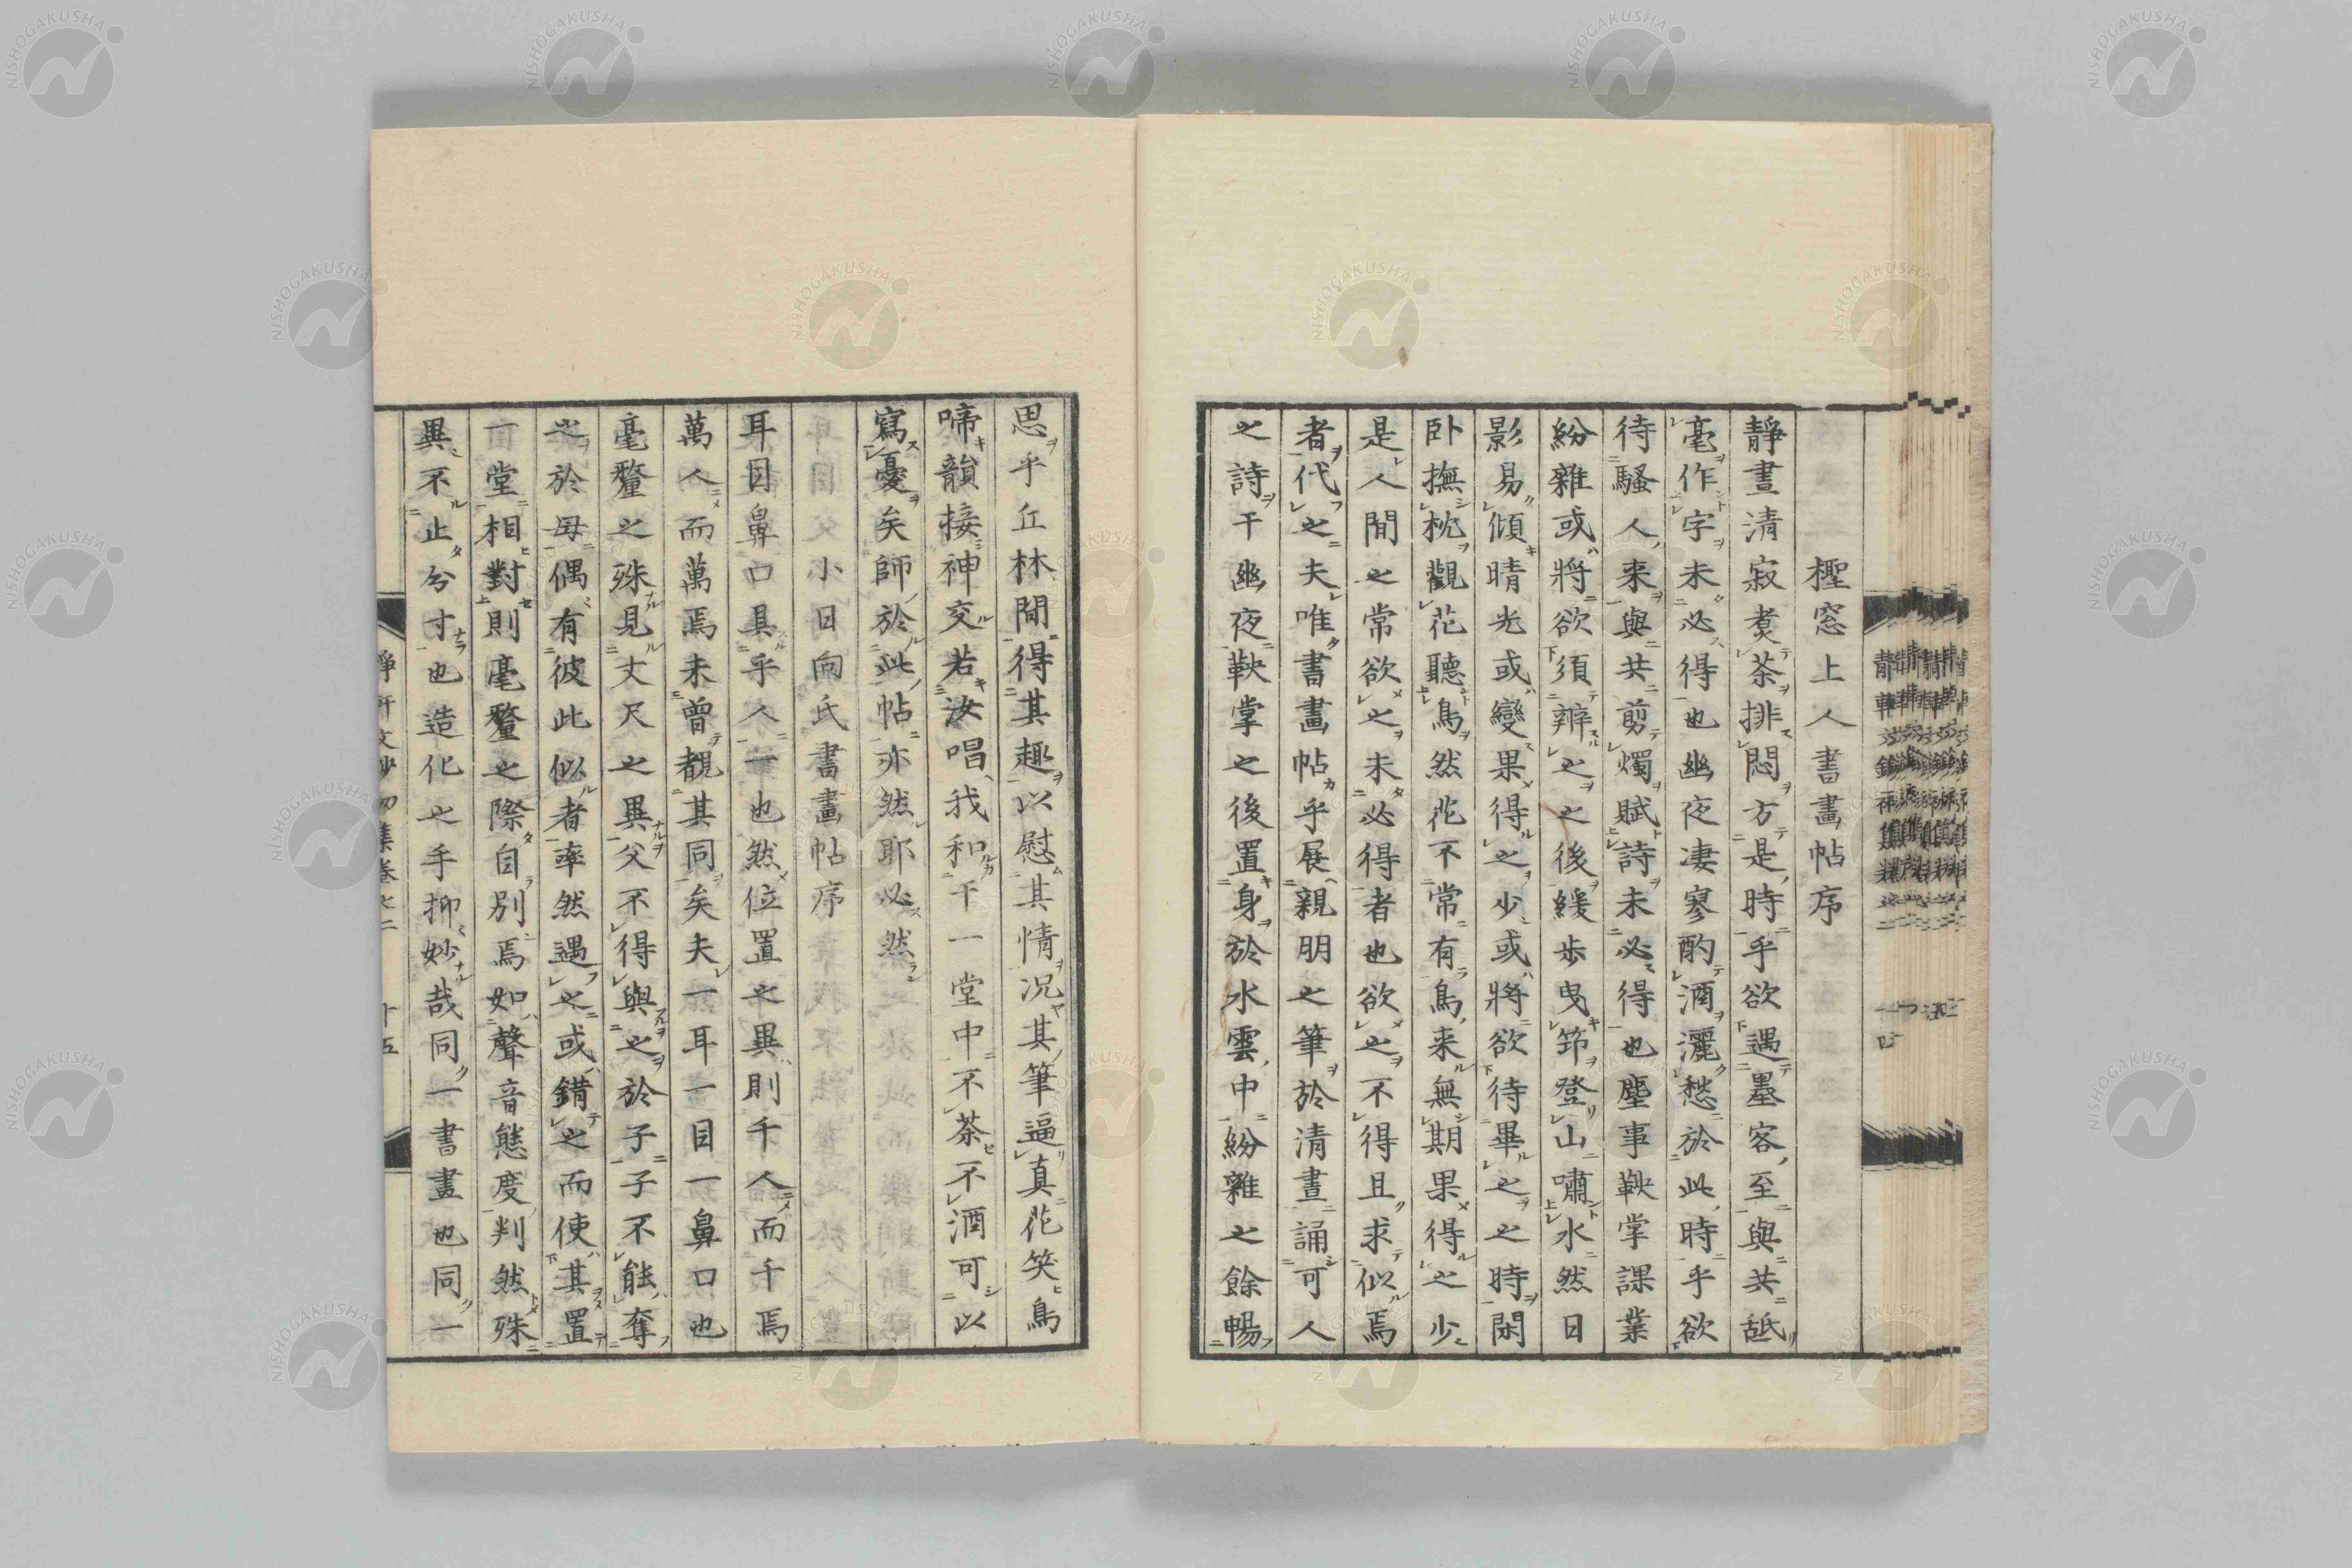 檉窓上人書畫帖序
靜晝清寂煑茶排悶方是時乎欲遇墨客至與共舐
毫作字未必得也幽夜凄寥酌酒灑愁於此時乎欲
待騷人来與共剪燭賦詩未必得也塵事鞅掌課業
紛雜或將欲須辨之之後緩歩曳笻登山嘯水然日
影易傾晴光或變果得之少或將欲待畢之之時閑
卧撫枕觀花聽鳥然花不常有鳥来無期果得之少
是人間之常欲之未必得者也欲之不得且求似焉
者代之夫唯書畫帖乎展親朋之筆於清晝誦可人
之詩于幽夜鞅掌之後置身於水雲中紛雜之餘暢
思乎丘林間得其趣以慰其情况其筆逼真花笑鳥
啼韻接神交若汝唱我和于一堂中不茶不酒可以
寫憂矣師於此帖亦然耶必然
小田向氏書畫帖序
耳目鼻口具乎人一也然位置之異則千人而千焉
萬人而萬焉未曾覩其同矣夫一耳一目一鼻口也
毫釐之殊見丈尺之異父不得與之於子子不能奪
之於母偶有彼此似者率然遇之或錯之而使其置
一堂相對則毫釐之際自別焉如聲音態度判然殊
異不止分寸也造化之手抑妙哉同一書畫也同一
靜軒文鈔初集卷之二 十五
NISHOGAKUSHA